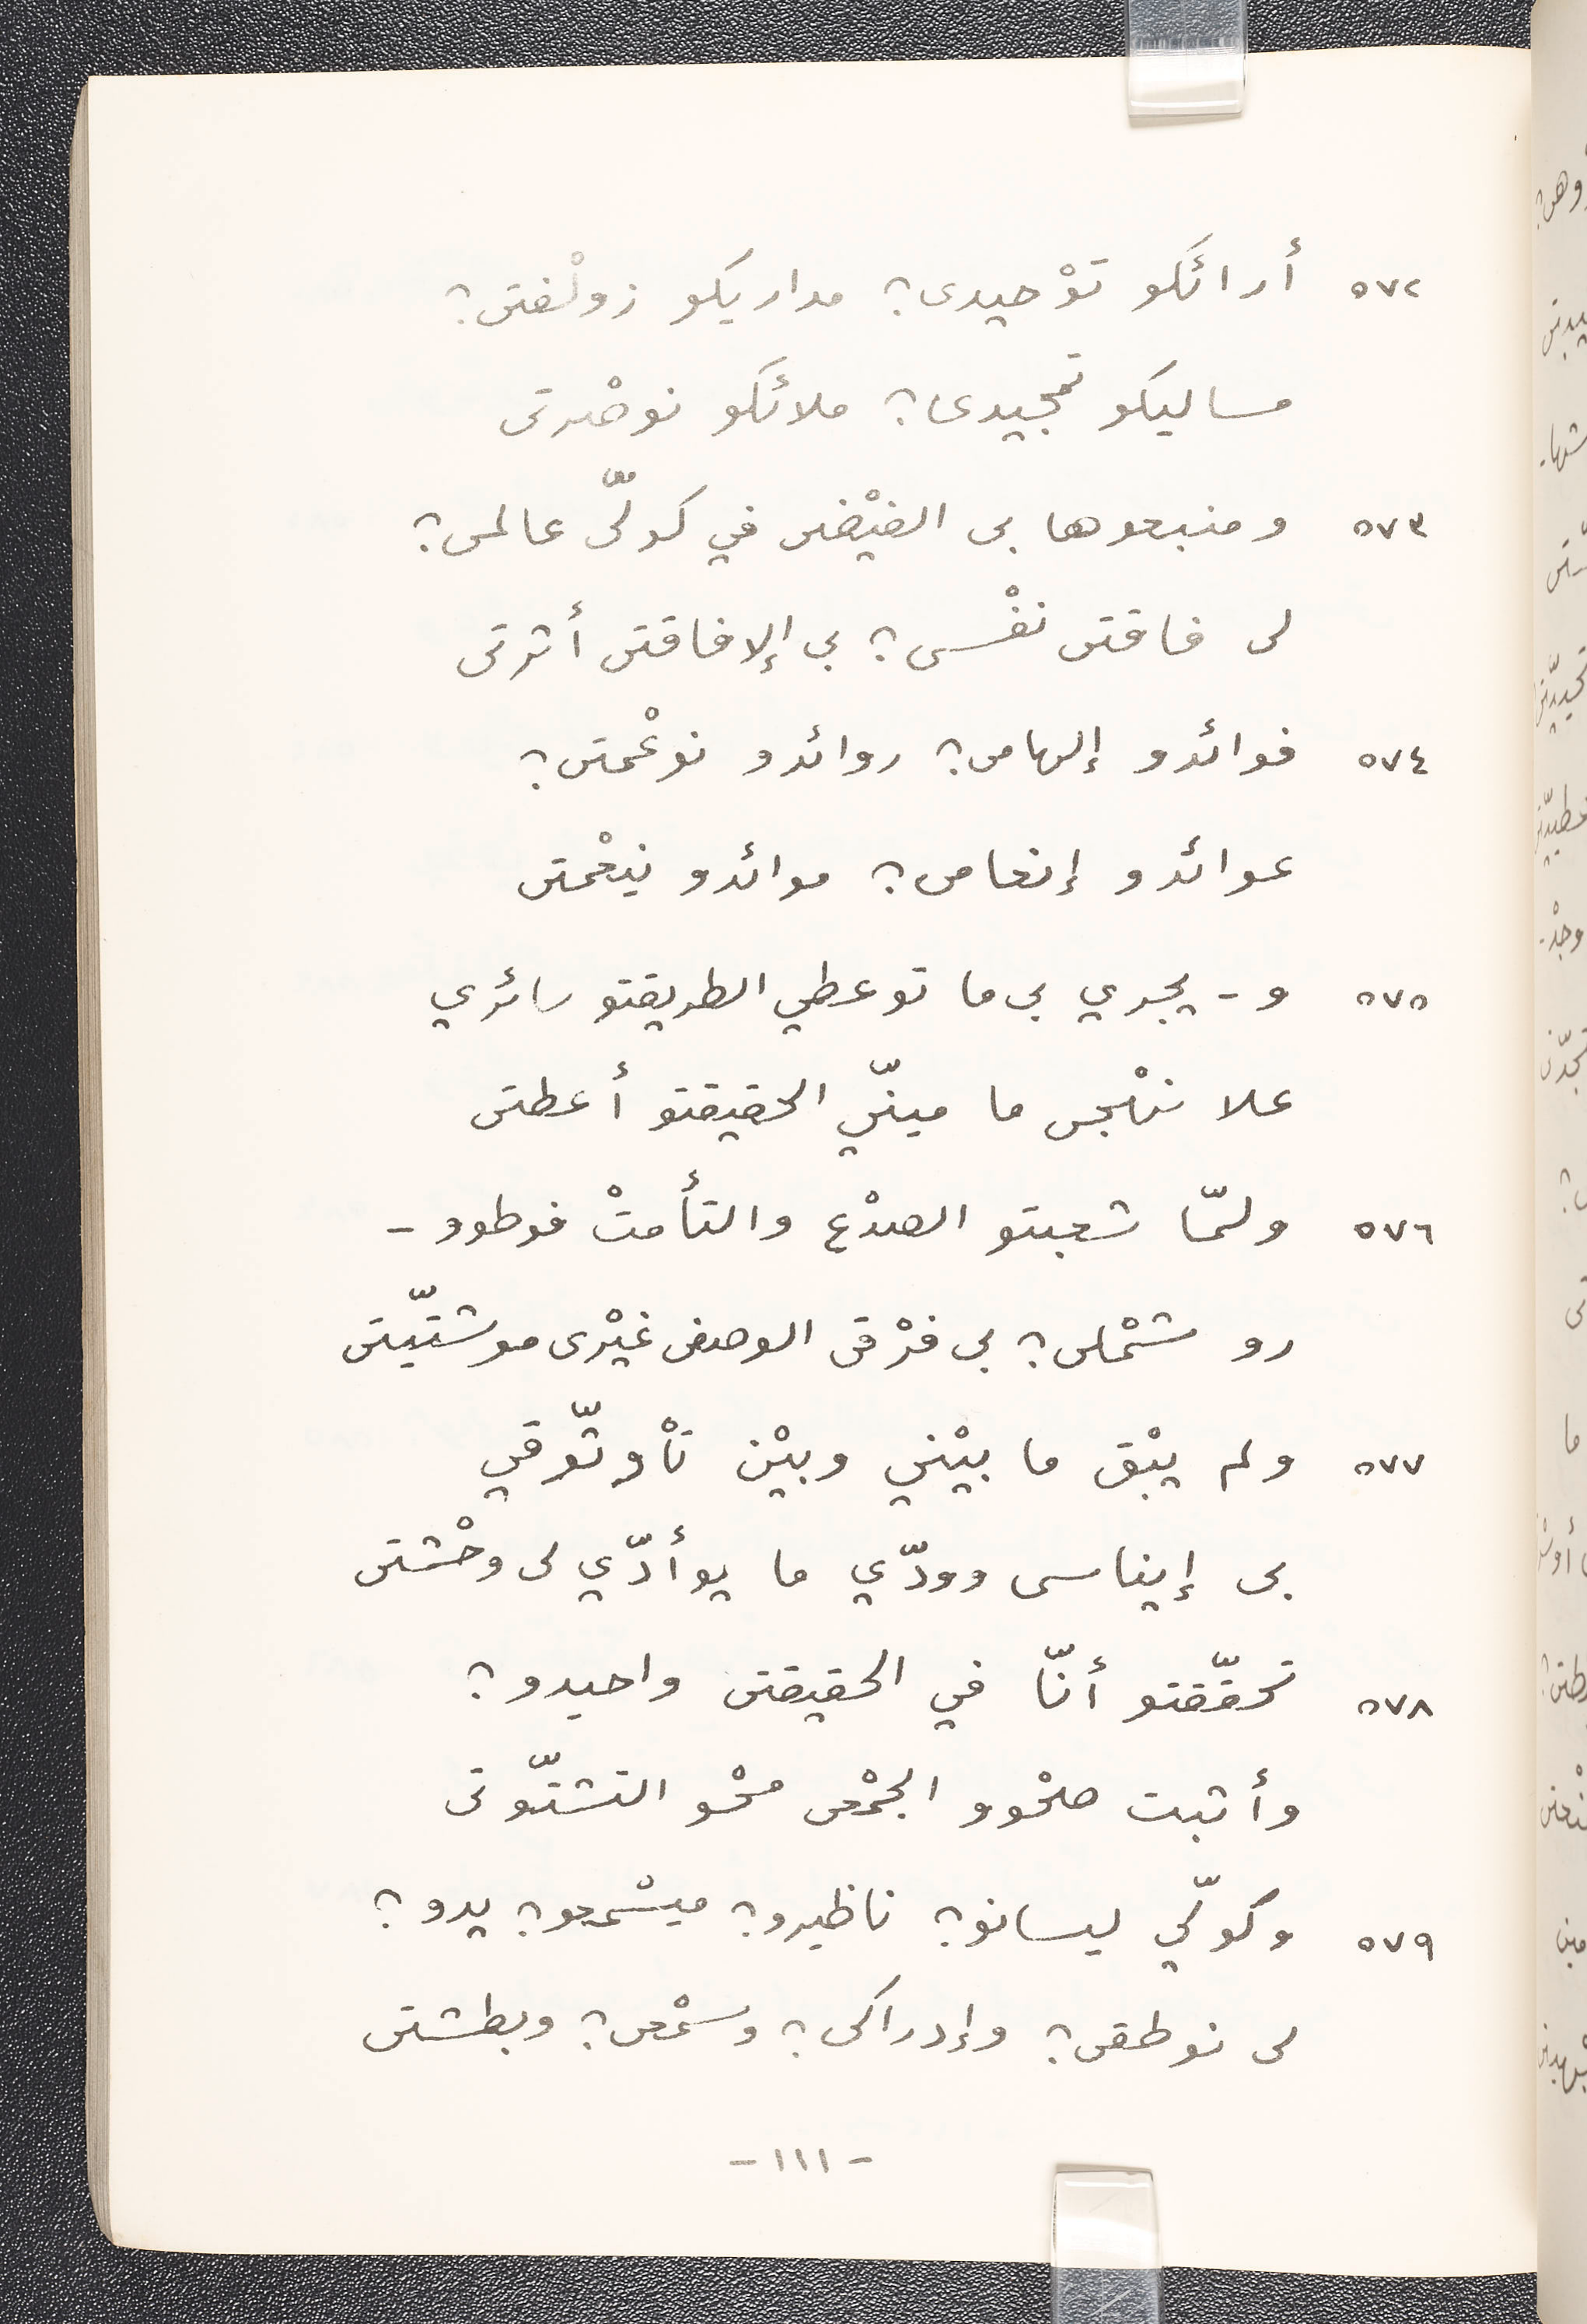 ٥٧٢ أرائكو توْحيدى؟ مداريكو زولْفتى؟
مساليكو تمجيدى؟ ملائكو نوصْرتى
٥٧٣ ومنبعوها بى الفيْضى في كولّى عالمى؟
لى فاقتى نفْسى؟ بى إلافاقتى أثرتى
٥٧٤ فوائدو إلهامى؟ روائدو نوعْمتى؟
عوائدو إنعامى؟ موائدو نيعْمتى
٥٧٥ و - يجري بى ما توعطي الطريقتو سائري
علا نهْجى ما مينّي الحقيقتو أعطتى
٥٧٦ ولمّا شعبتو الصدْع والتأمتْ فوطوو -
رو شمْلى؟ بى فرْقى الوصفى غيْرى موشتّيتى
٥٧٧ ولم يبْق ما بيْني وبيْن تأْوثّوقي
بى إيناسى وودّي ما يوأدّي لى وحْشتى
٥٧٨ تحقّقتو أنّا في الحقيقتى واحيدو؟
وأثبت صحْوو الجمْعى محْو التشتّوتى
٥٧٩ وكولّي ليسانو؟ ناظيرو؟ ميسْمعو؟ يدو؟
لى نوطقى؟ وإدراكى؟ وسمْعى؟ وبطشتى
- ١١١ -